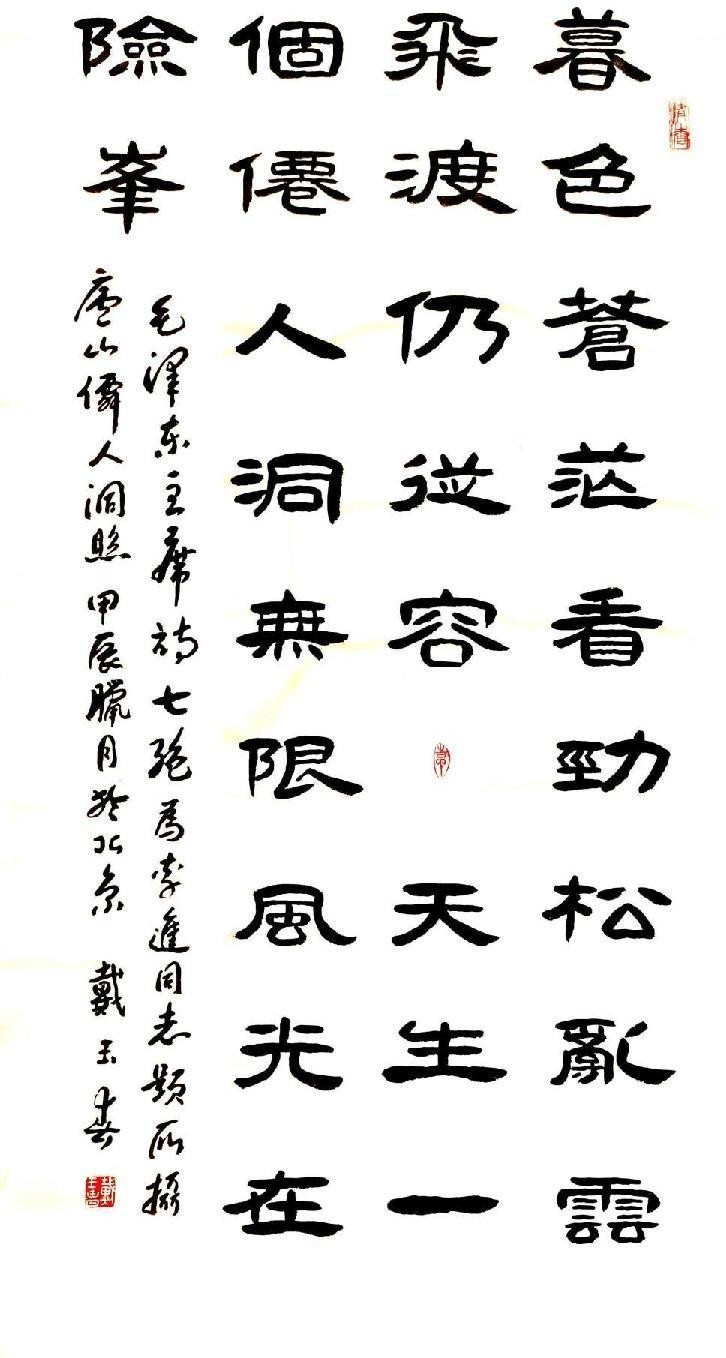 暮色蒼茫看勁松亂雲
飛渡仍從容 天生一
個僊人洞無限風光在
險峯
毛澤東主席詩七絕為李進同志題所攝
廬山僊人洞照 甲辰臘月於北京 戴玉